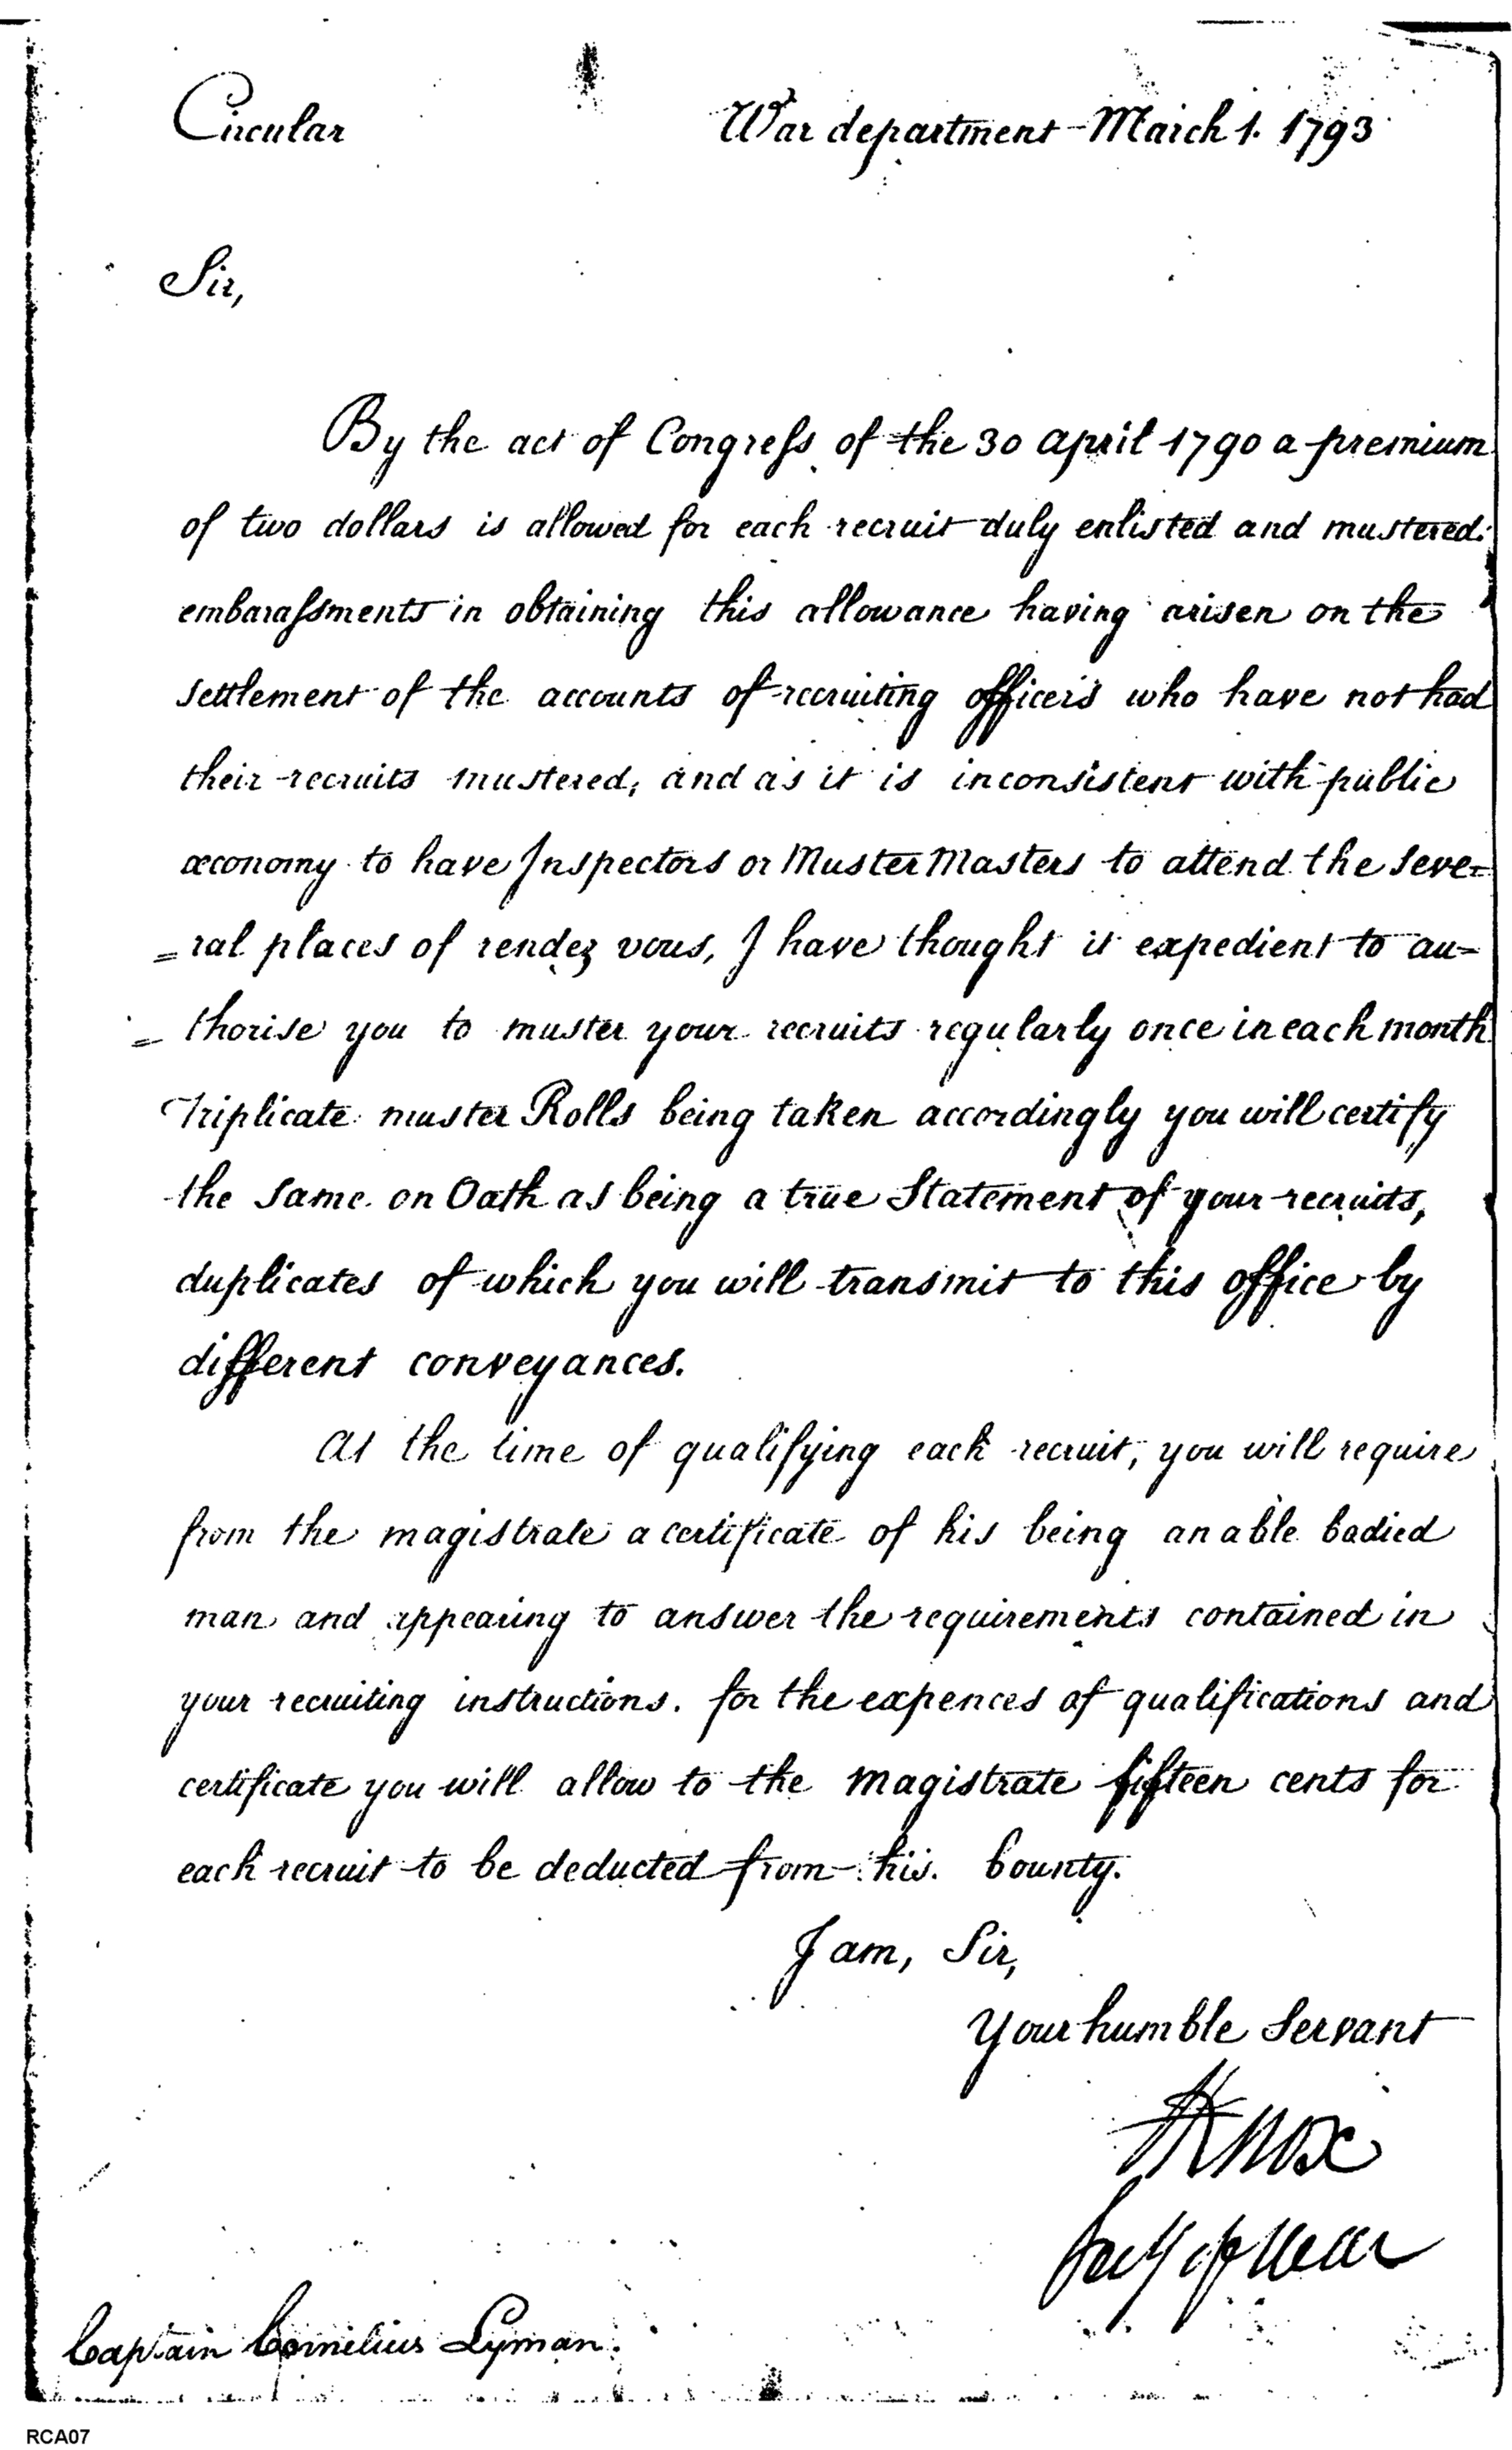 Circular War department - March 1. 1793
Sir,
By the act of Congress of the 30 april 1790 a premium
of two dollars is allowed for each recruit duly enlisted and mustered.
embarassments in obtaining this allowance having arisen on the
settlement of the accounts of recruiting officers who have not had
their recruits mustered; and as it is inconsistent with public
œconomy to have Inspectors or Muster Masters to attend the seve=
=ral places of rendez vous, I have thought it expedient to au=
=thorise you to muster your recruits regularly once in each month
Triplicate muster Rolls being taken accordingly you will certify
the same on Oath as being a true Statement of your recruits,
duplicates of which you will transmit to this office by
different conveyances.
At the time of qualifying each recruit, you will require
from the magistrate a certificate of his being an able bodied
man and appearing to answer the requirements contained in
your recruiting instructions. for the expences of qualifications and
certificate you will allow to the magistrate fifteen cents for
each recruit to be deducted from his bounty.
I am, Sir,
Your humble Servant
HKnox
Secy of War
Captain Cornelius Lyman.
RCA07